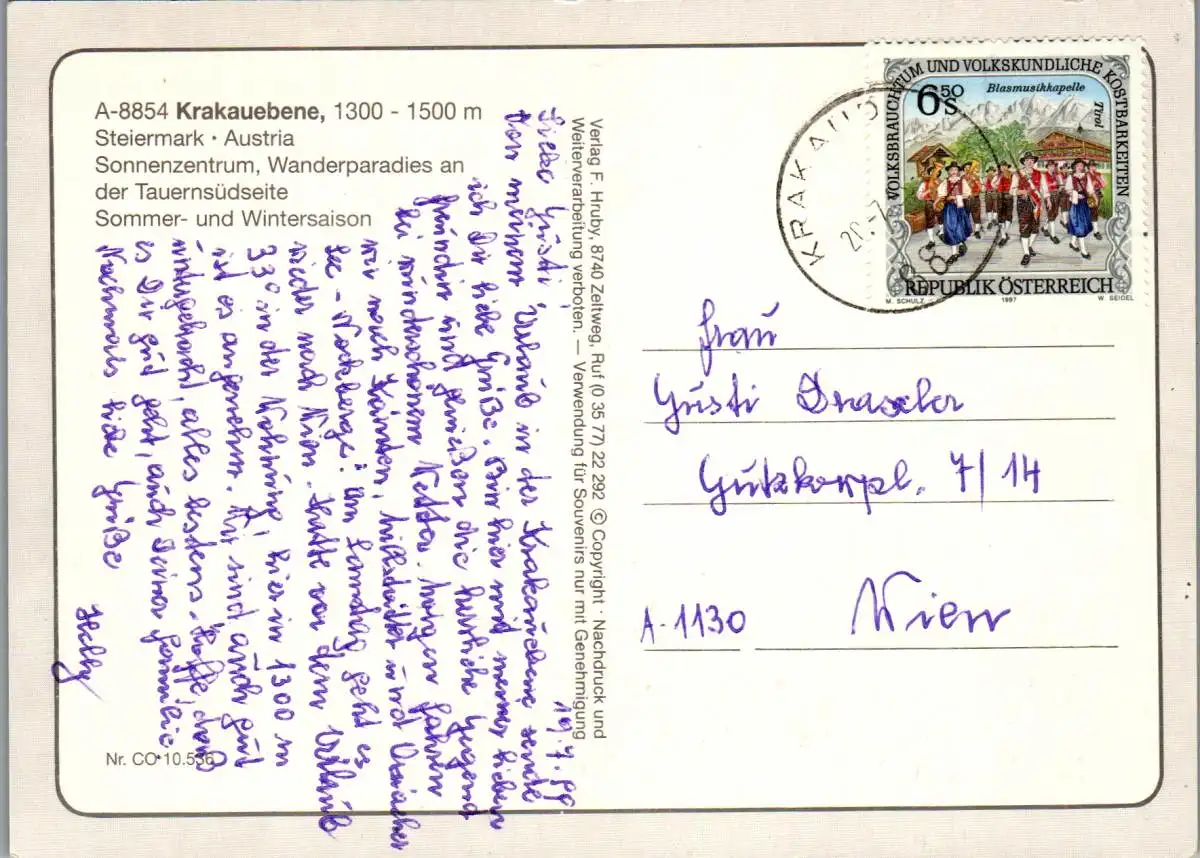 A-8854 Krakauebene, 1300 - 1500 m
Steiermark · Austria
Sonnenzentrum, Wanderparadies an
der Tauernsüdseite
Sommer- und Wintersaison
19.7.99
Liebe Gusti,
Von meinem Urlaub in der Krakauebene sende
ich Dir liebe Grüße. Bin hier mit meiner lieben
Freundin und genießen die herrliche Gegend
bei wunderschönem Wetter. Morgen fahren
wir nach Kärnten, Millstätter und Ossiacher
See - Nockberge. Am Samstag geht es
wieder nach Wien. Hatte vor dem Urlaub
33° in der Wohnung, hier in 1300 m
ist es angenehm. Wir sind auch gut
untergebracht, alles bestens. Hoffe, daß
es Dir gut geht, auch Deiner Familie
Nochmals liebe Grüße
Helly
Nr. CO·10.536
Verlag F. Hruby, 8740 Zeltweg, Ruf (0 35 77) 22 292 © Copyright · Nachdruck und
Weiterverarbeitung verboten. — Verwendung für Souvenirs nur mit Genehmigung
VOLKSBRAUCHTUM UND VOLKSKUNDLICHE KOSTBARKEITEN
6 50 S
Blasmusikkapelle
Tirol
REPUBLIK ÖSTERREICH
M. SCHULZ 1997 W. SEIDEL
KRAKAUD
20.-7
8
Frau
Gusti Draxler
Gutzkowpl. 7/14
A-1130 Wien